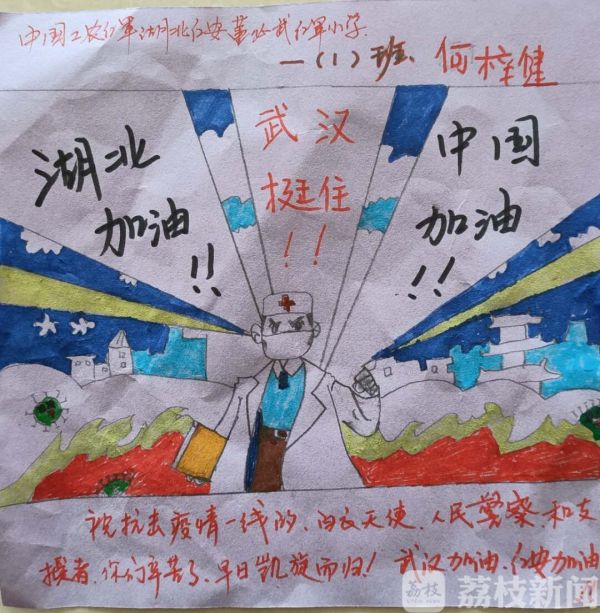 中国工农红军湖北红安董必武红军小学.
一(1)班、何梓健
湖北
加油
!!
武汉
挺住
!!
中国
加油
!!
祝抗击疫情一线的、白衣天使、人民警察、和支
援者、你们辛苦了、早日凯旋而归! 武汉加油、红安加油
荔枝 荔枝新闻